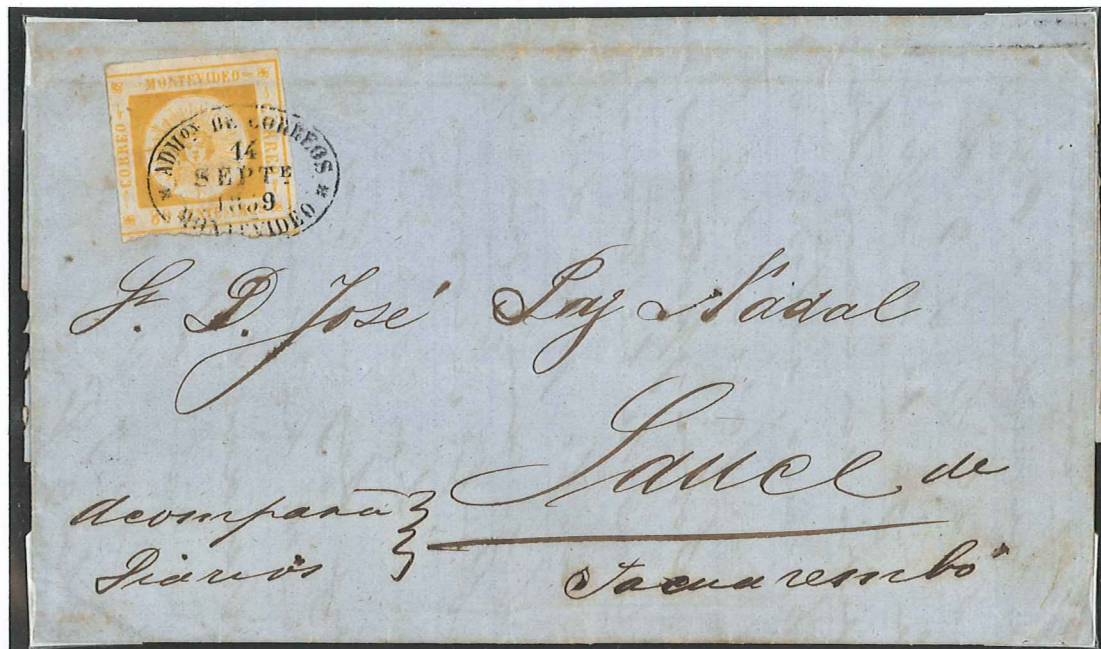 MONTEVIDEO
CORREO
CORREO
ADMON DE CORREOS
14
SEPTE
1859
MONTEVIDEO
Sr. D. José Paz Nadal
Sauce de
Acompaña
Diarios
Tacuarembó